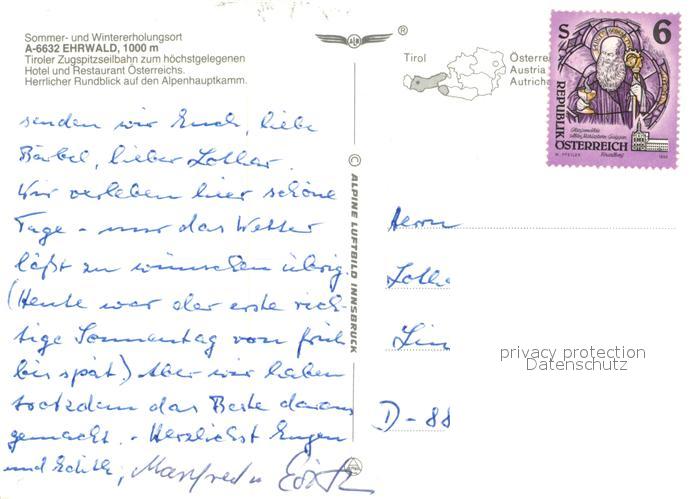 Sommer- und Wintererholungsort
A-6632 EHRWALD, 1000 m
Tiroler Zugspitzseilbahn zum höchstgelegenen
Hotel und Restaurant Österreichs.
Herrlicher Rundblick auf den Alpenhauptkamm.
senden wir Euch, liebe
Bärbel, lieber Lothar.
Wir verleben hier schöne
Tage - nur das Wetter
läßt zu wünschen übrig.
(Heute war der erste rich-
tige Sonnentag von früh
bis spät.) Aber wir haben
trotzdem das Beste daraus
gemacht. - Herzlichst Eugen
und Edith, Manfred u Edith
®
© ALPINE LUFTBILD INNSBRUCK
Tirol
Österre
Austria
Autrich
6
REPUBLIK
ÖSTERREICH
Herrn
Lotha
Lin
privacy protection
Datenschutz
D-88